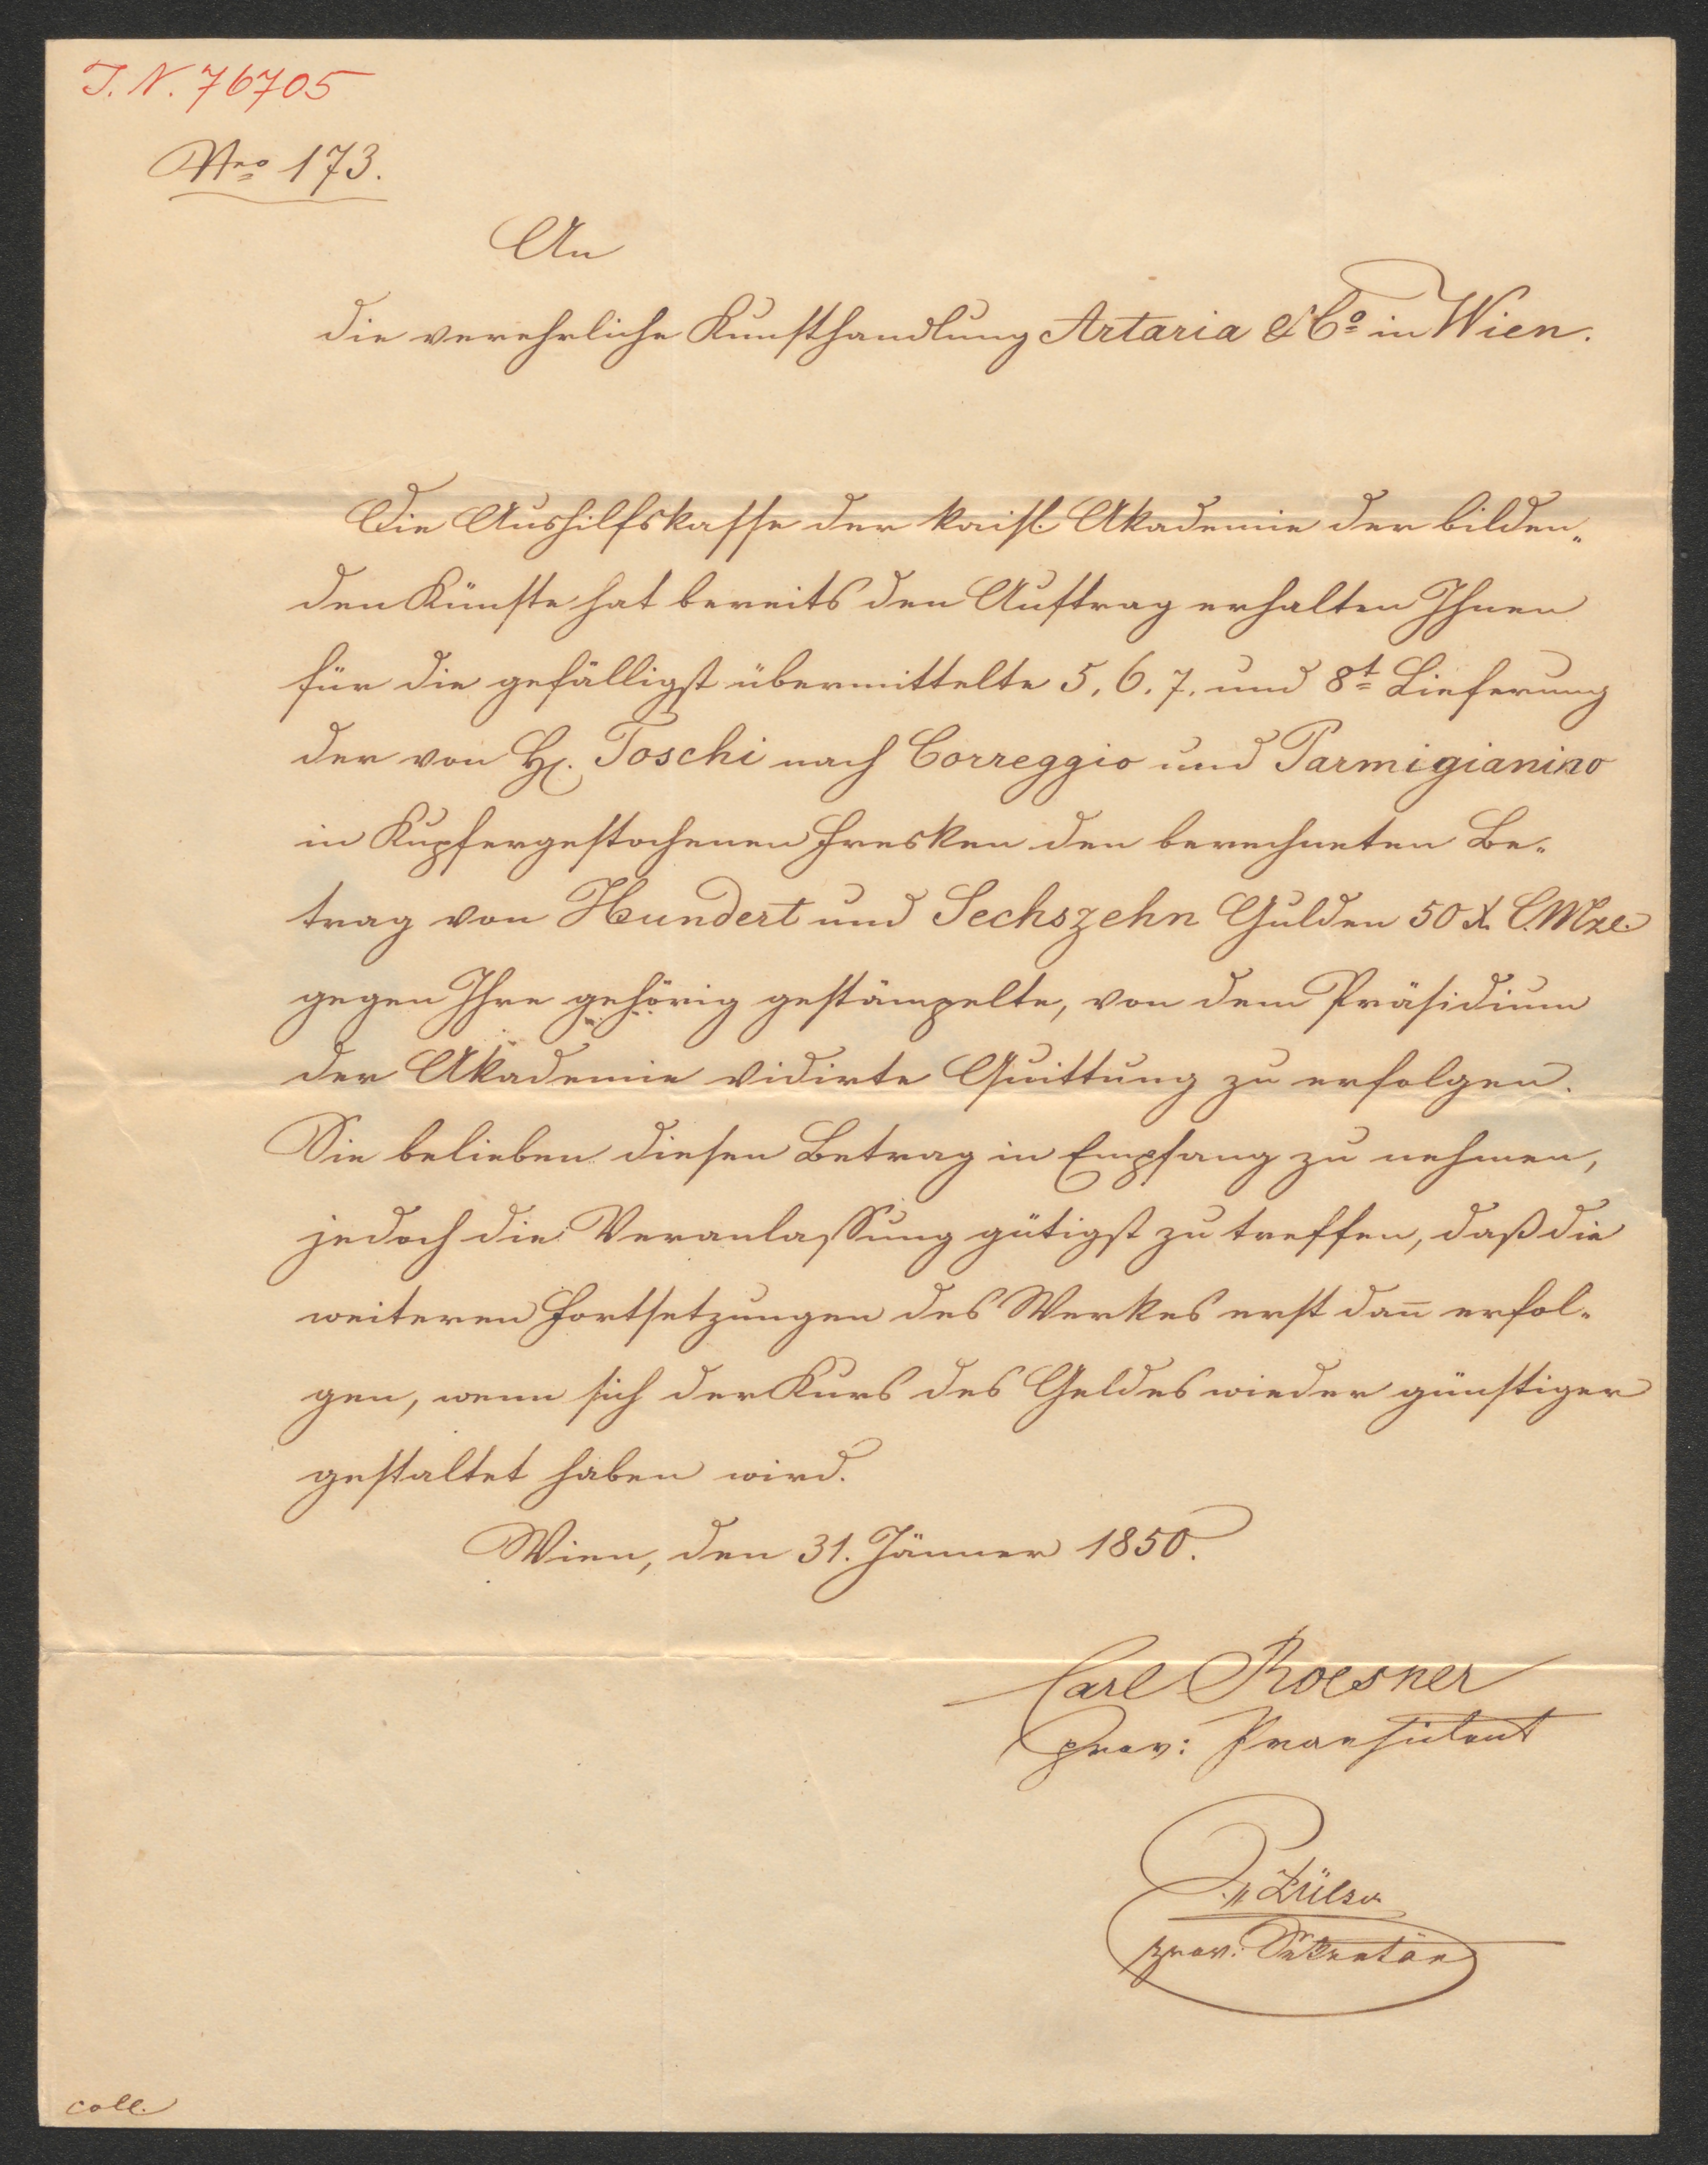 I. N. 76705
Nro 173.
An
die verehrliche Kunsthandlung Artaria & Co in Wien.
Die Aushilfskasse der kaisl. Akademie der bilden„
den Künste hat bereits den Auftrag erhalten Ihnen
für die gefälligst übermittelte 5. 6. 7. und 8t Lieferung
der von H. Toschi nach Correggio und Parmigianino
in Kupfergestochenen Fresken den berechneten Be„
trag von Hundert und Sechszehn Gulden 50 x C.Mze.
gegen Ihre gehörig gestämpelte, von dem Präsidium
der Akademie vidirte Quittung zu erfolgen.
Sie belieben diesen Betrag in Empfang zu nehmen,
jedoch die Veranlassung gütigst zu treffen, daß die
weiteren Fortsetzungen des Werkes erst dan̄ erfol„
gen, wenn sich der Kurs des Geldes wieder günstiger
gestaltet haben wird.
Wien, den 31. Jänner 1850.
Carl Roesner
prov: Praesident
prov. Sekretär
coll.